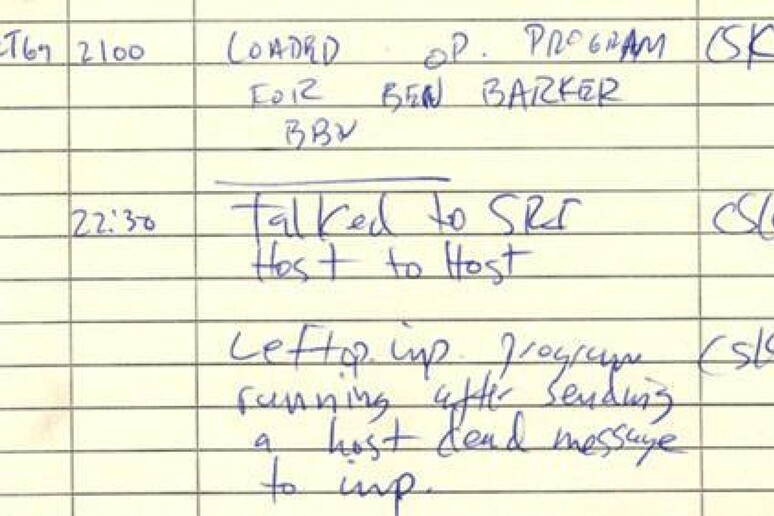 CT69 2100 LOADED OP. PROGRAM (SK
FOR BEN BARKER
BBN
22:30 Talked to SRI (Sl
Host to Host
Left op. imp. program (sl
running after sending
a host dead message
to imp.